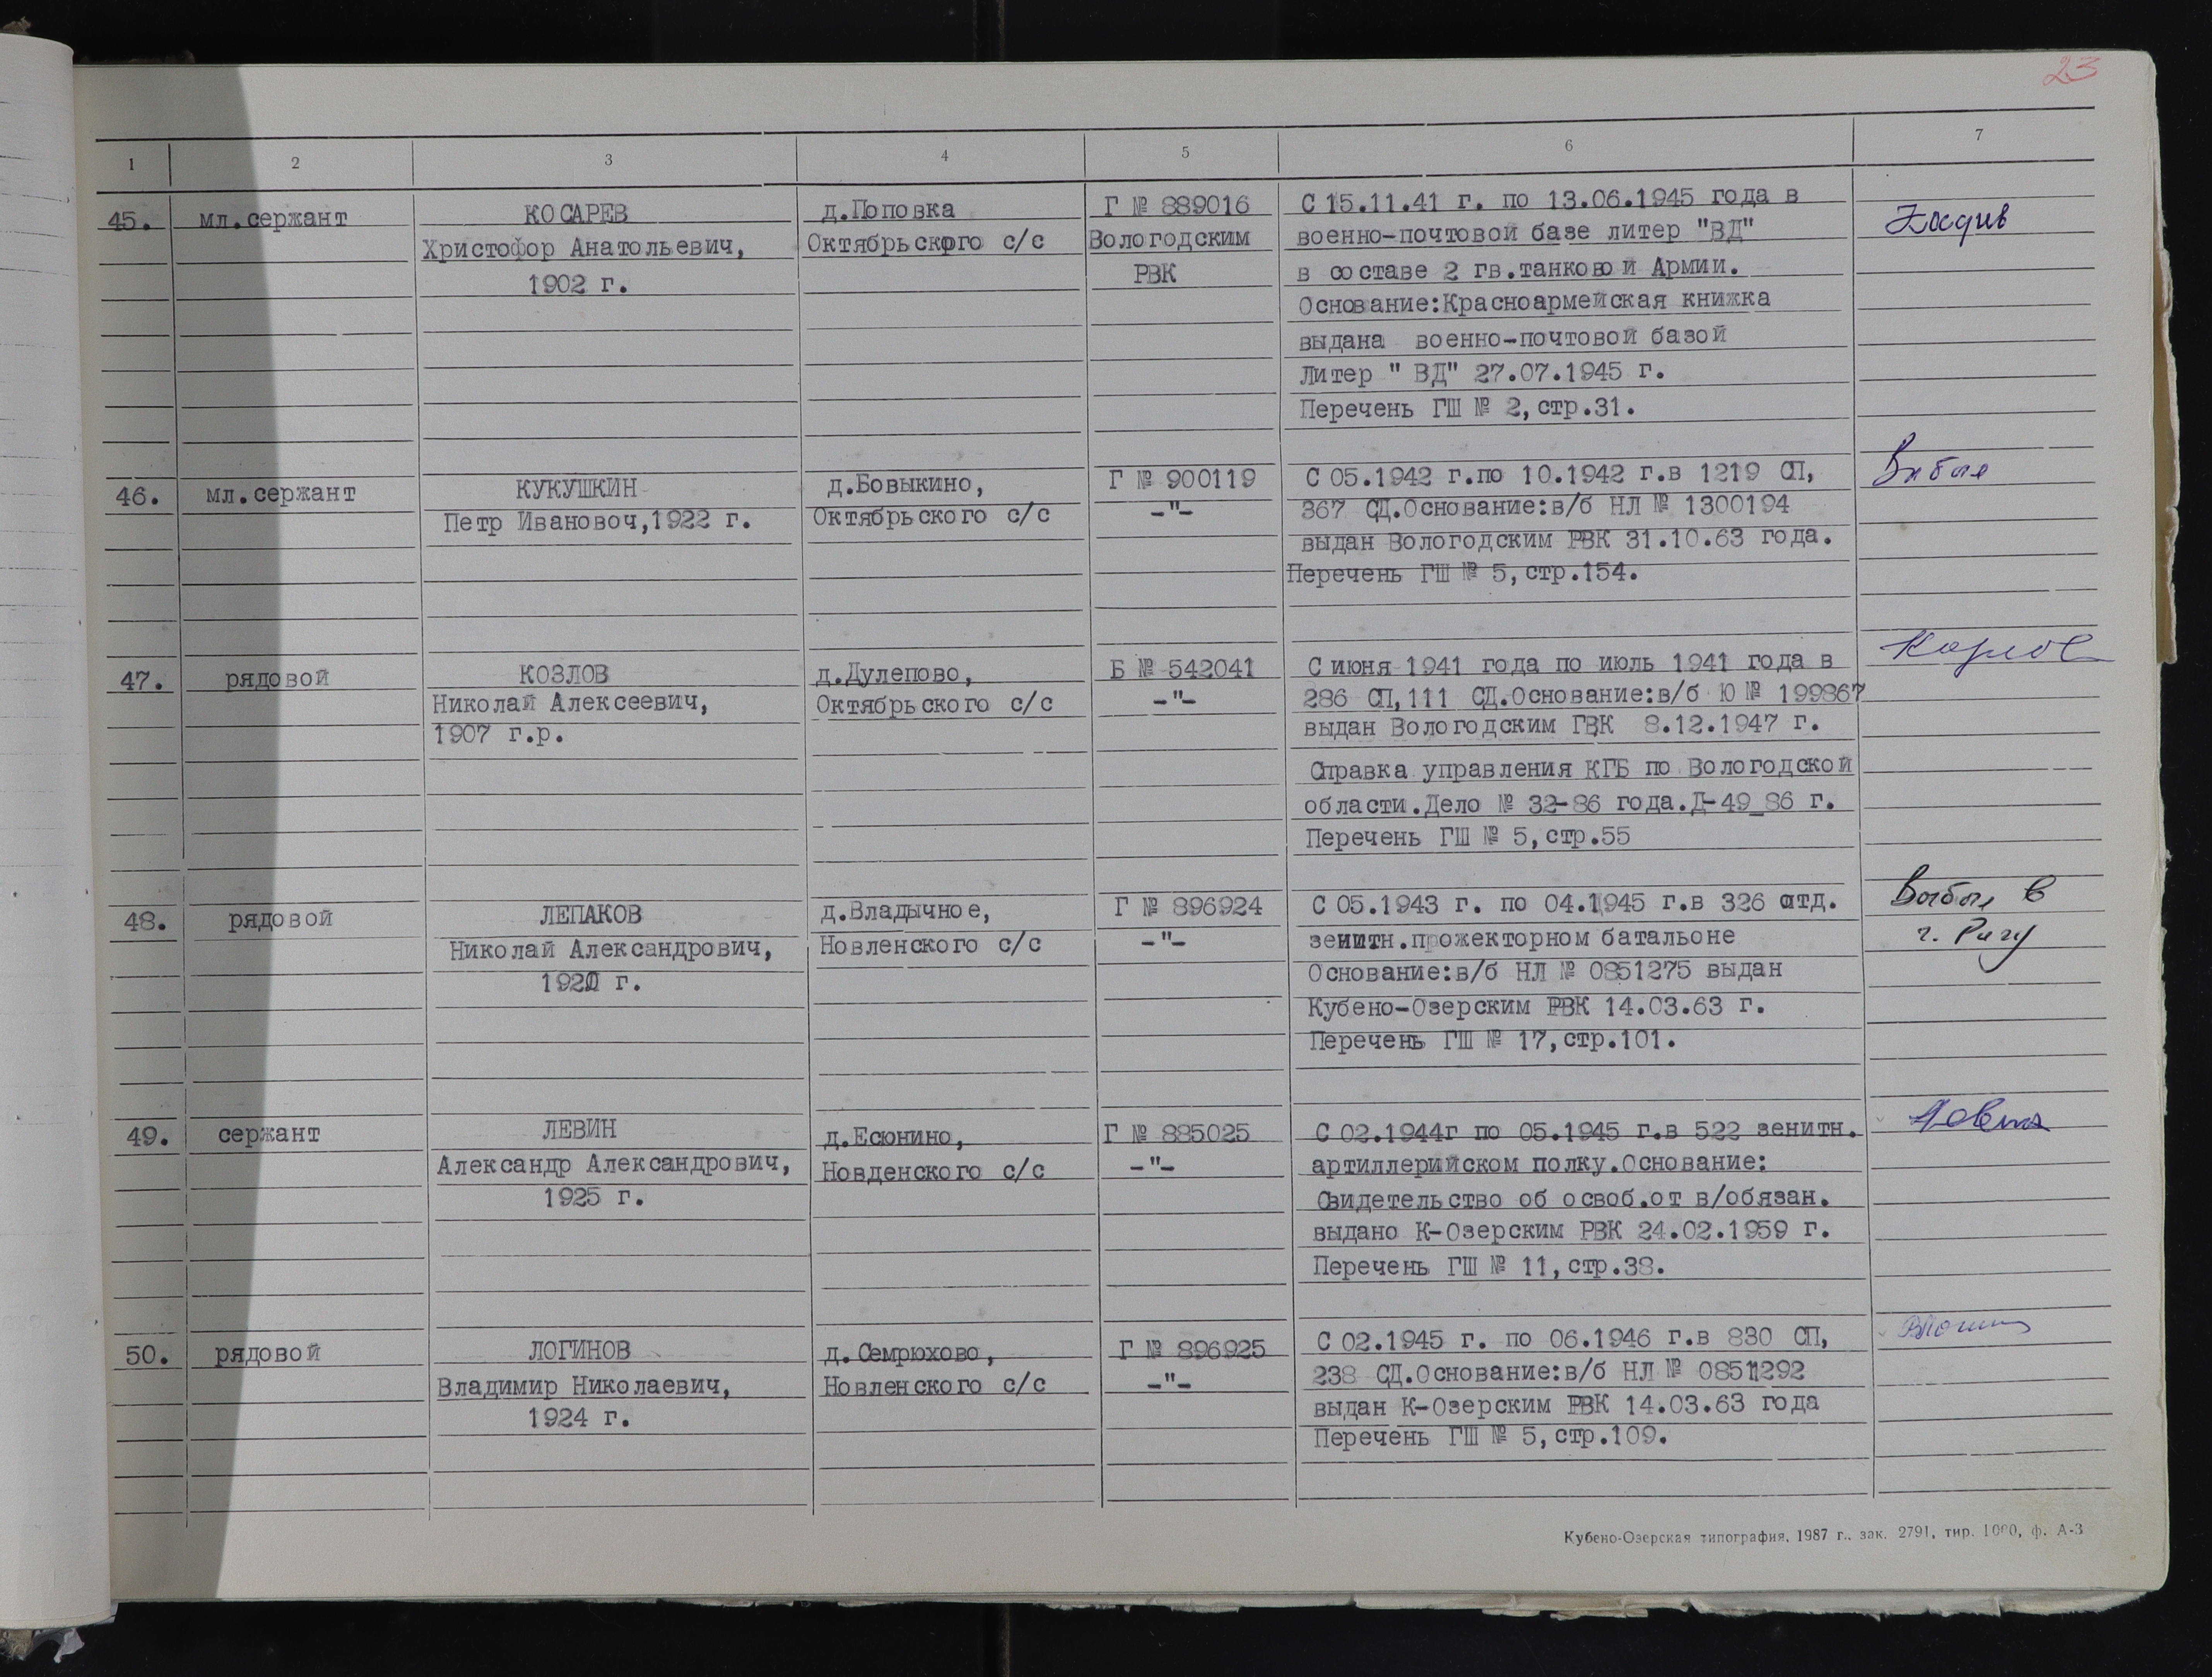 23
1 2 3 4 5 6 7
45. мл.сержант КОСАРЕВ д.Поповка Г № 889016 С 15.11.41 г. по 13.06.1945 года в
Христофор Анатольевич, Октябрьского с/с Вологодским военно-почтовой базе литер "ВД"
1902 г. РВК в составе 2 гв.танковой Армии.
Основание:Красноармейская книжка
выдана военно-почтовой базой
Литер " ВД" 27.07.1945 г.
Перечень ГШ № 2,стр.31.
46. мл.сержант КУКУШКИН д.Бовыкино, Г № 900119 С 05.1942 г.по 10.1942 г.в 1219 СП, Выбыл
Петр Ивановоч,1922 г. Октябрьского с/с -"- 367 СД.Основание:в/б НЛ № 1300194
выдан Вологодским РВК 31.10.63 года.
Перечень ГШ № 5,стр.154.
47. рядовой КОЗЛОВ д.Дулепово, Б № 542041 С июня 1941 года по июль 1941 года в
Николай Алексеевич, Октябрьского с/с -"- 286 СП,111 СД.Основание:в/б Ю № 199867
1907 г.р. выдан Вологодским ГВК 8.12.1947 г.
Справка управления КГБ по Вологодской
области.Дело № 32-86 года.Д-49_86 г.
Перечень ГШ № 5,стр.55
48. рядовой ЛЕПАКОВ д.Владычное, Г № 896924 С 05.1943 г. по 04.1945 г.в 326 отд. Выбыл в
Николай Александрович, Новленского с/с -"- зенитн.прожекторном батальоне г. Ригу
г. Основание:в/б НЛ № 0851275 выдан
Кубено-Озерским РВК 14.03.63 г.
Перечень ГШ № 17,стр.101.
49. сержант ЛЕВИН д.Есюнино, Г № 885025 С 02.1944г по 05.1945 г.в 522 зенитн.
Александр Александрович, Новденского с/с -"- артиллерийском полку.Основание:
1925 г. Свидетельство об освоб.от в/обязан.
выдано К-Озерским РВК 24.02.1959 г.
Перечень ГШ № 11,стр.38.
50. рядовой ЛОГИНОВ д.Семрюхово, Г № 896925 С 02.1945 г. по 06.1946 г.в 830 СП,
Владимир Николаевич, Новленского с/с -"- 238 СД.Основание:в/б НЛ №
1924 г. выдан К-Озерским РВК 14.03.63 года
Перечень ГШ № 5,стр.109.
Кубено-Озерская типография, 1987 г., зак. 2791, тир. 1000, ф. А-3